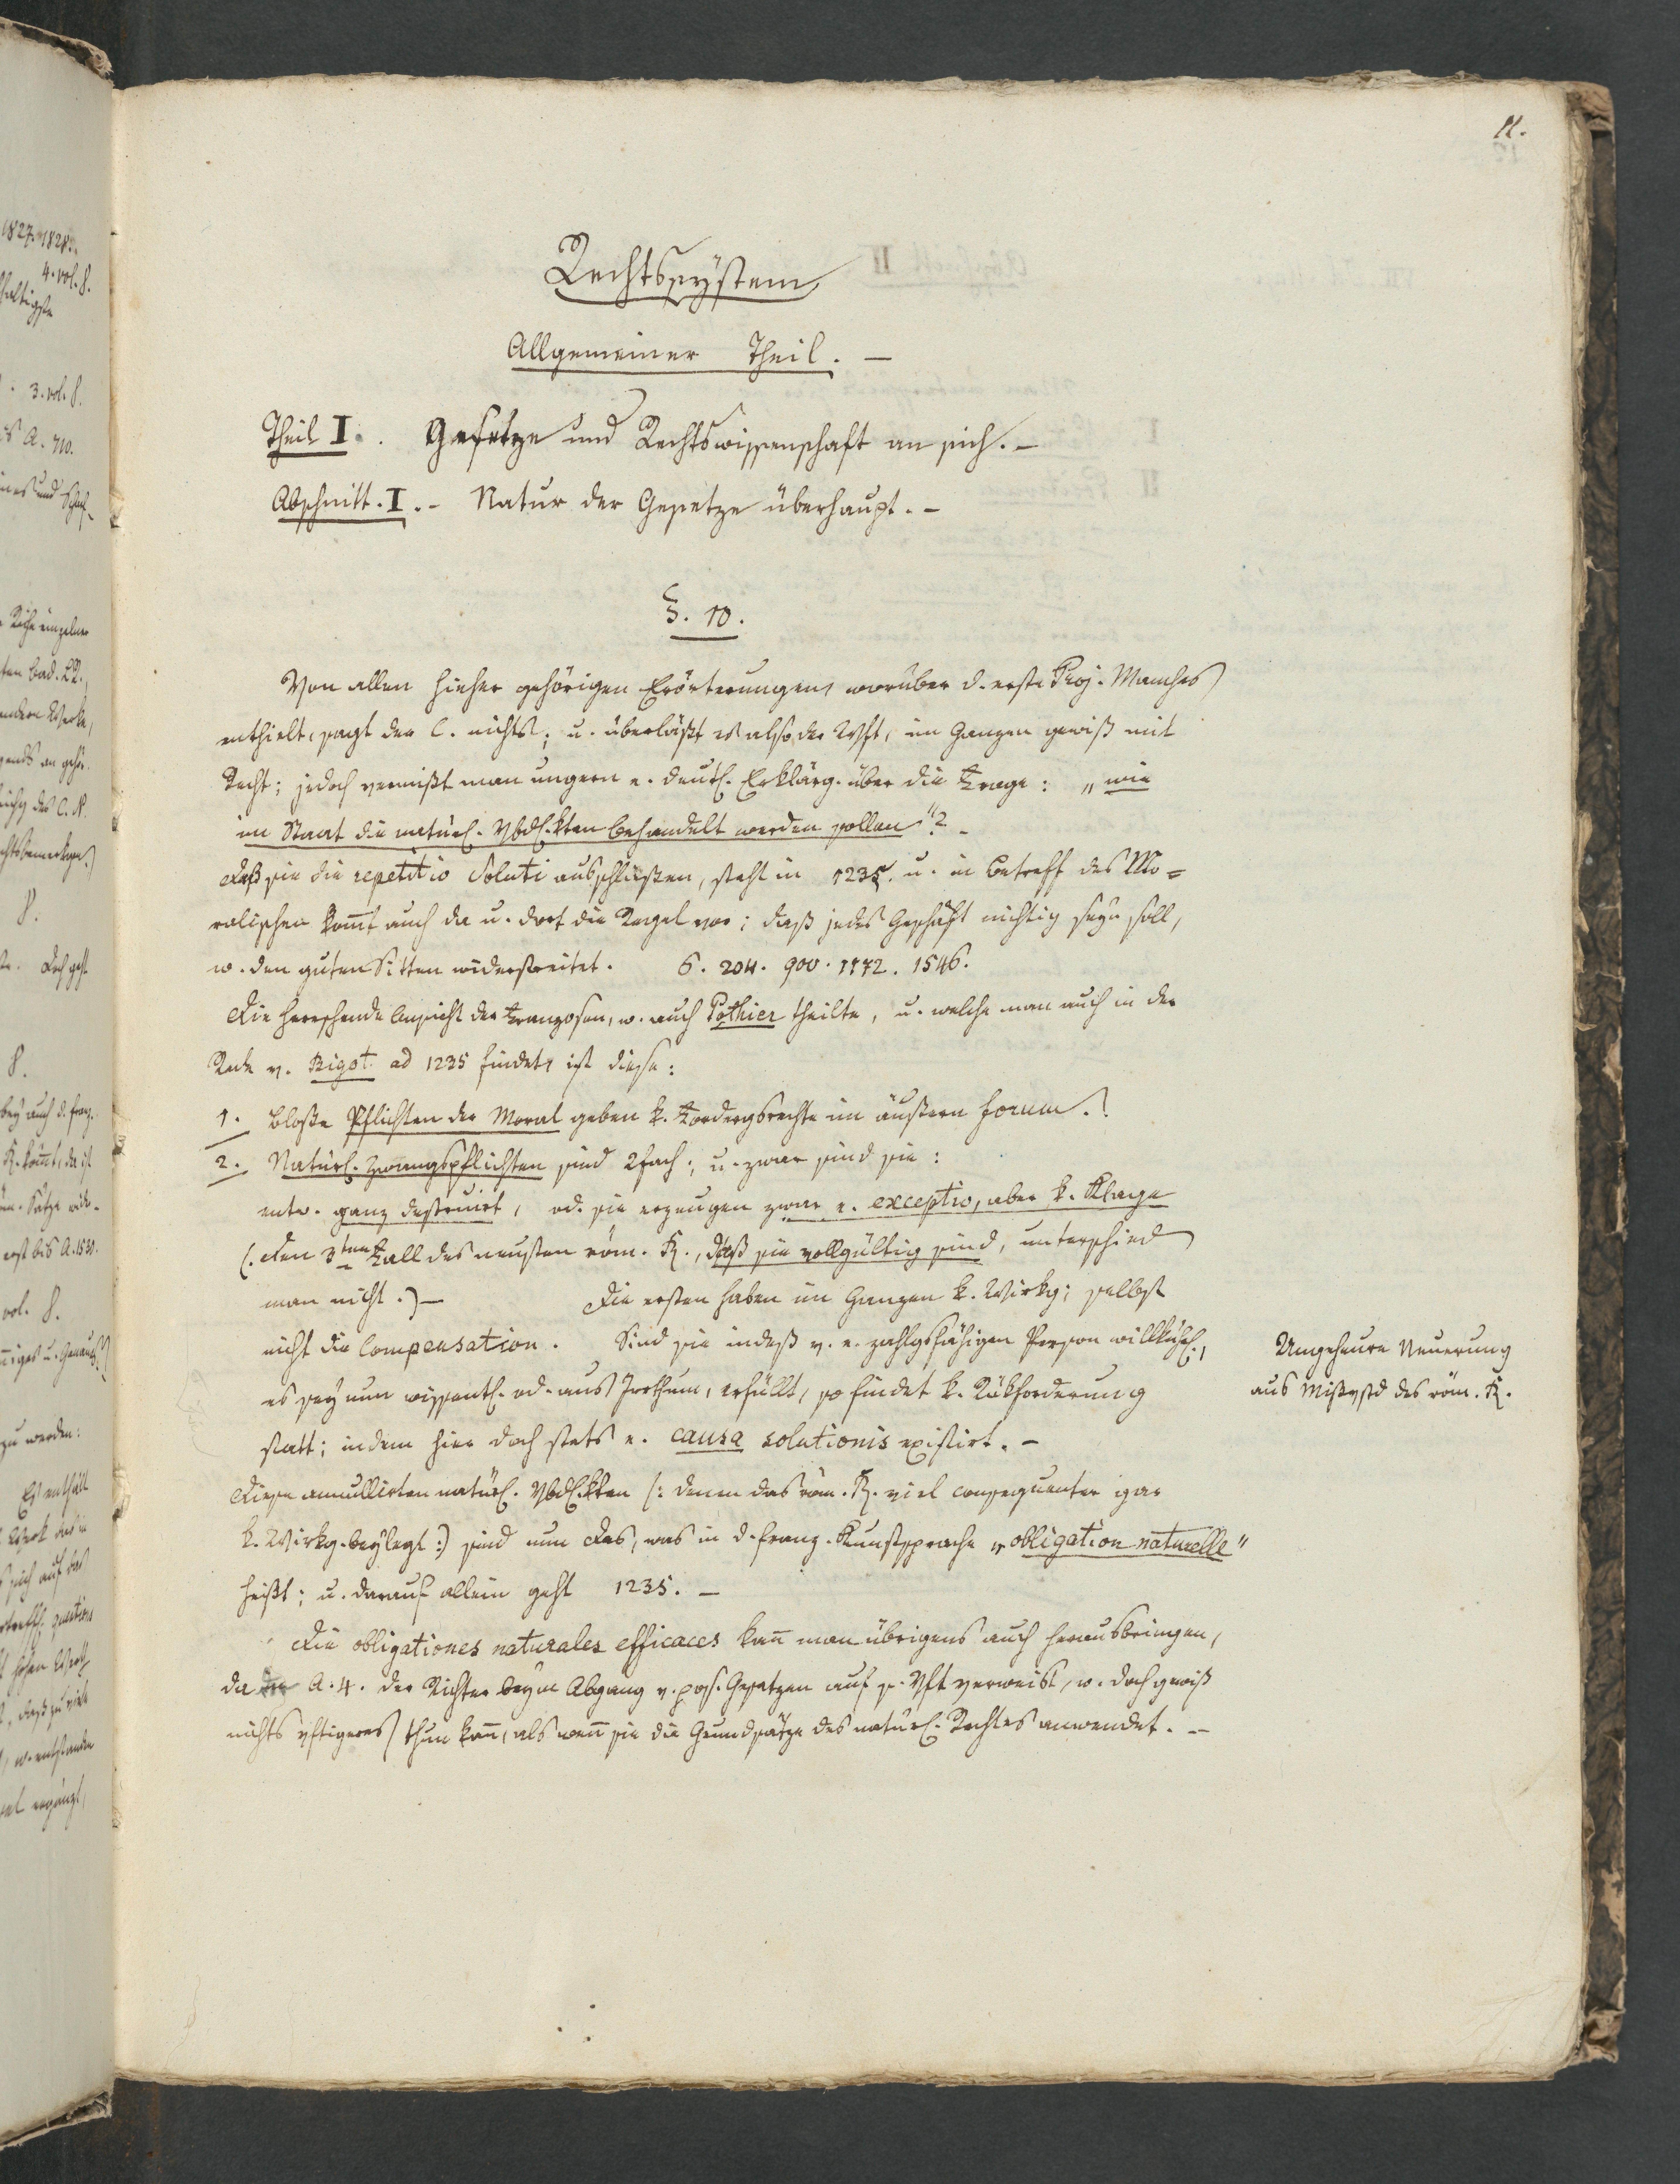 11.
Rechtssystem
Allgemeiner Theil. —
Theil I. Gesetze und Rechtswissenschaft an sich. –
Abschnitt. I. – Natur der Gesetze überhaupt. –
§. 10.
Von allen hieher gehörigen Erörterungen, worüber d. erste Proj. Manches
enthielt, sagt der C. nichts; u. überläßt es also der Wsft, im Ganzen gewiß mit
Recht; jedoch vermißt man ungern e. deutl. Erklärg. über die Frage: „wie
im Staat die natürl. Vbdl.kten behandelt werden sollen"? –
Daß sie die repetitio soluti ausschließen, steht in 1235. u. in Betreff des Mo=
ralischen kom̄t auch da u. dort die Regel vor; daß jedes Geschäft nichtig seyn soll,
w. den guten Sitten widerstreitet. 6. 204. 900. 1172. 1546.
Die herrschende Ansicht der Franzosen, w. auch Pothier theilte, u. welche man auch in der
Rede v. Bigot ad 1235 findet, ist diese:
1. Bloße Pflichten der Moral geben k. Fordergsrechte im äußern forum.
2. Natürl. Zwangspflichten sind 2fach; u. zwar sind sie:
entw. ganz destruirt, od. sie erzeugen zwar e. exceptio, aber k. Klage
(. Den 3ten Fall des neusten röm. R., daß sie vollgültig sind, unterschied
man nicht.) — Die ersten haben im Ganzen k. Wirkg; selbst
nicht die Compensation. Sind sie indeß v. e. zahlgsfähigen Person willkührl.,
es sey nun wissentl. od. aus Irrthum, erfüllt, so findet k. Rükforderung
statt; indem hier doch stets e. causa solutionis existirt. –
Diese annullirten natürl. Vbdl.kten (: denen das röm. R. viel consequenter gar
k. Wirkg. beylegt :) sind nun das, was in d. franz. Kunstsprache „obligation naturelle"
heißt; u. darauf allein geht 1235. –
Die obligationes naturales efficaces kan̄ man übrigens auch herausbringen,
da A. 4. der Richter beym Abgang v. pos. Gesetzen auf s. Vft verweist, w. doch gewiß
nichts vftigeres thun kan̄, als wen̄ sie die Grundsätze des natürl. Rechtes anwendet. –
Ungeheure Neuerung
aus Mißvstd des röm. R.